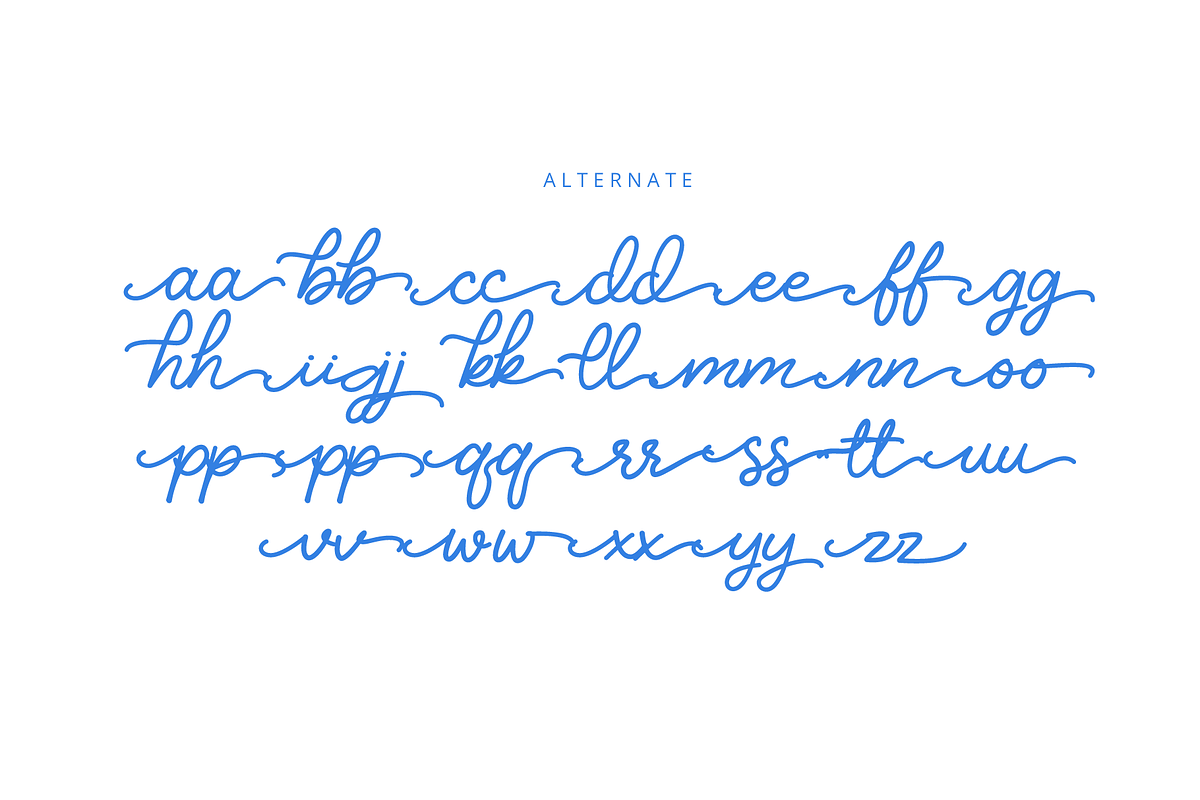 ALTERNATE
aa bb cc dd ee ff gg
hh ii jj kk ll mm nn oo
pp pp qq rr ss tt uu
vv ww xx yy zz